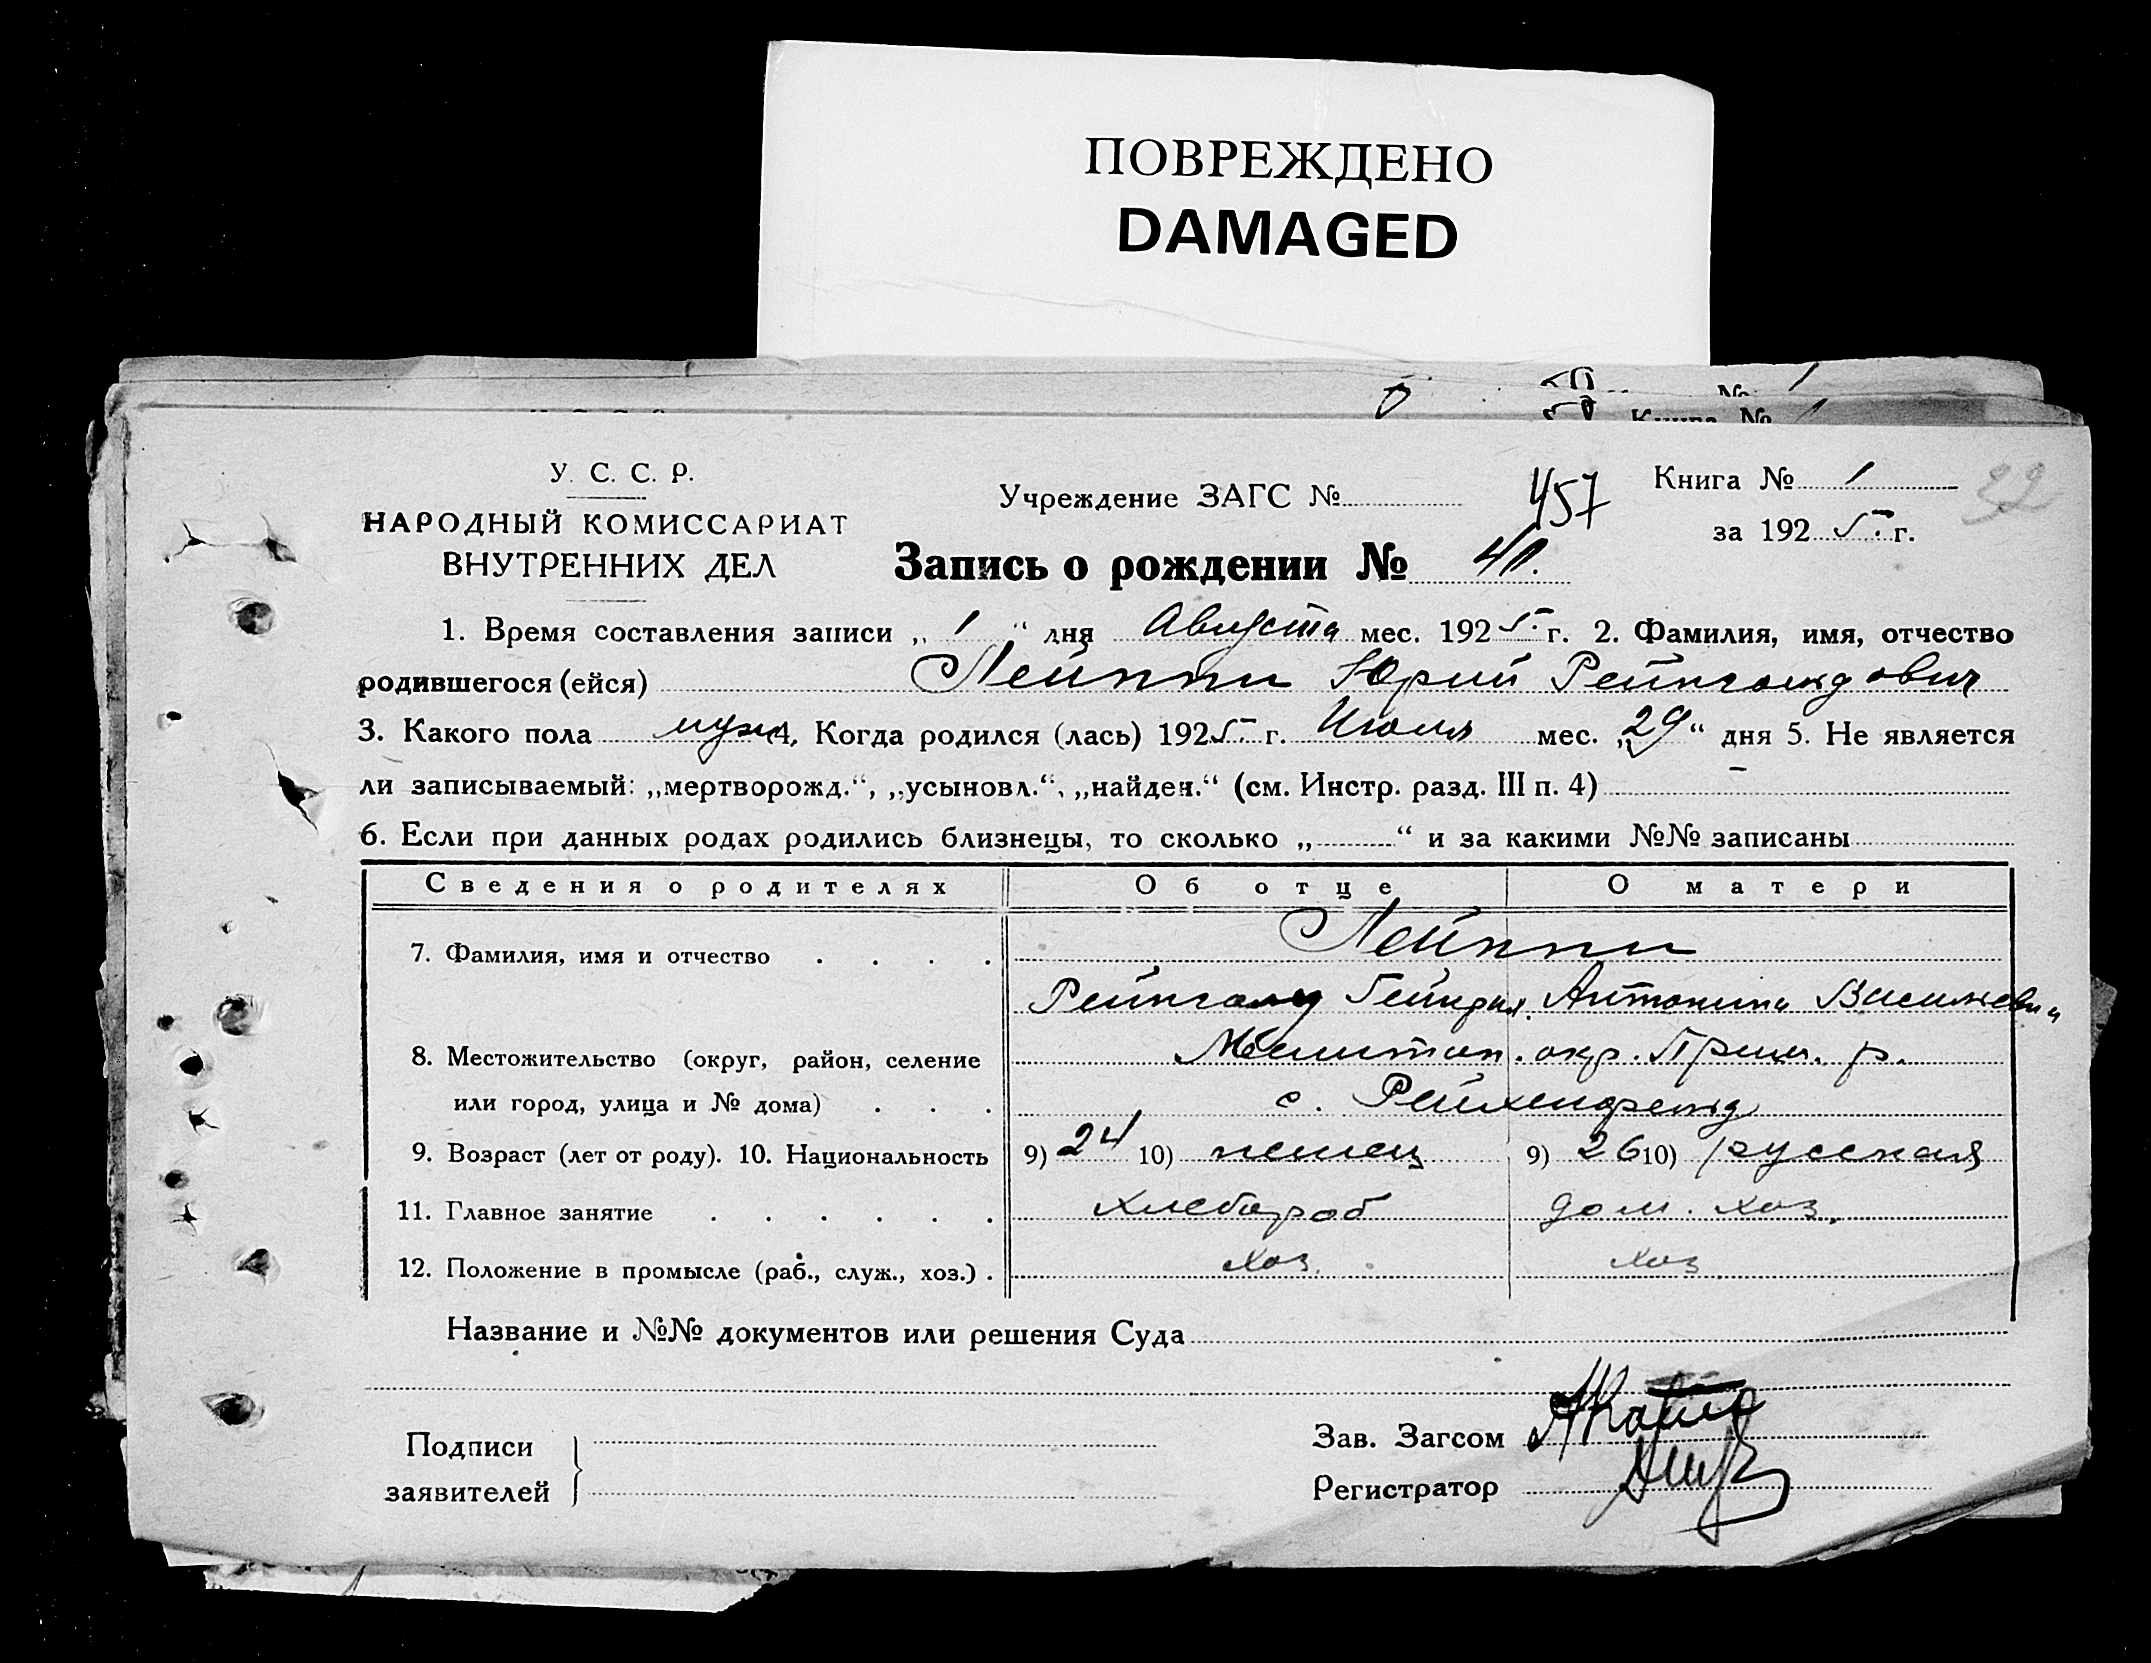 ПОВРЕЖДЕНО
DAMAGED
У. С. С. Р.
НАРОДНЫЙ КОМИССАРИАТ
ВНУТРЕННИХ ДЕЛ
Учреждение ЗАГС №
457
Книга № 1
32
за 1925 г.
Запись о рождении № 41.
1. Время составления записи „ 1 “ дня Августа мес. 1925 г. 2. Фамилия, имя, отчество
родившегося (ейся) Лейппи Юрий Рейнгольдович
3. Какого пола муж 4. Когда родился (лась) 1925 г. Июля мес. „29“ дня 5. Не является
ли записываемый: „мертворожд.“, „усыновл.“, „найден.“ (см. Инстр. разд. III п. 4) –
6. Если при данных родах родились близнецы, то сколько „ “ и за какими №№ записаны
Сведения о родителях Об отце О матери
7. Фамилия, имя и отчество . . . . Лейппи
Рейнгольд Гейнрих. Антонина Васильевна
8. Местожительство (округ, район, селение Мелитоп. окр. Приш. р.
или город, улица и № дома) . . . с. Рейхенфельд
9. Возраст (лет от роду). 10. Национальность 9) 24 10) немец 9) 26 10) русская
11. Главное занятие . . . . . . хлебороб дом. хоз.
12. Положение в промысле (раб., служ., хоз.) . хоз. хоз
Название и №№ документов или решения Суда
Подписи
заявителей
Зав. Загсом
Регистратор